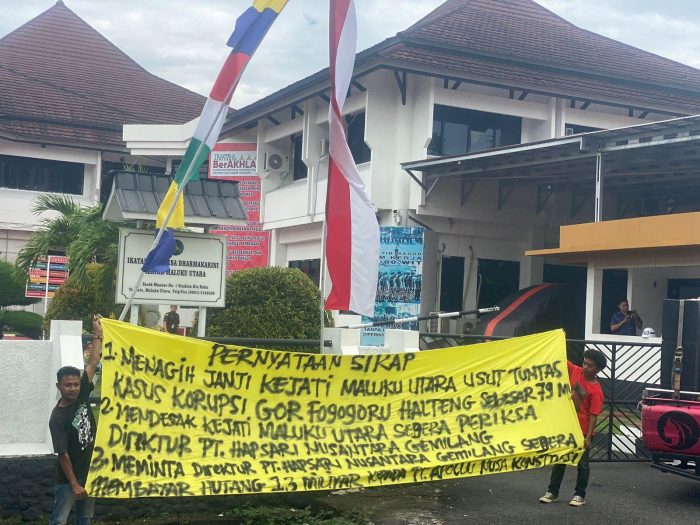 BerAKHLA
IKATAN
SA DHARMAKARINI
MALUKU UTARA
PERNYATAAN SIKAP
1. MENAGIH JANTI KEJATI MALUKU UTARA USUT TUNTAS
KASUS KORUPSI GOR FOGOGORU HALTENG SEBESAR 79 M
2. MENDESAK KEJATI MALUKU UTARA SEGERA PERIKSA
DIREKTUR PT. HAPSARI NUSANTARA GEMILANG
3. MEMINTA DIREKTUR PT. HAPSARI NUSANTARA GEMILANG SEGERA
MEMBAYAR HUTANG 1.3 MILIYAR KEPADA PT. APOLLU NUSA KONSTRUKSI